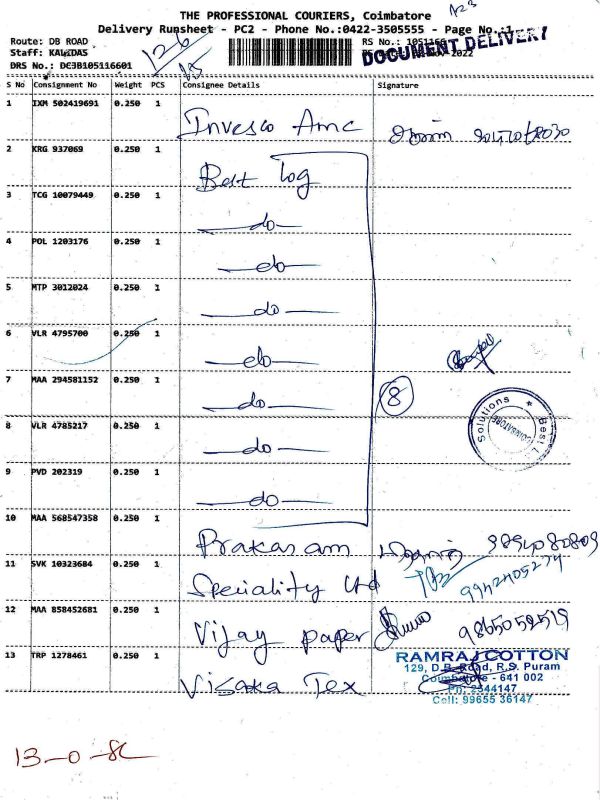 THE PROFESSIONAL COURIERS, Coimbatore
Delivery Runsheet - PC2 - Phone No.:0422-3505555 - Page No.:1
Route: DB ROAD
Staff: KALIDAS
DRS No.: DCJB105116601
DOCUMENT DELIVERY
2022
126
S No Consignment No Weight PCS Consignee Details Signature
1 IXM 502419691 0.250 1 Invesco Amc
2 KRG 937069 0.250 1 Best log
3 TCG 10079449 0.250 1 do
4 POL 1203176 0.250 1 do
5 MTP 3012024 0.250 1 do
6 VLR 4795700 0.250 1 do
7 MAA 294581152 0.250 1 do 8
8 VLR 4785217 0.250 1 do
9 PVD 202319 0.250 1 do
Solutions * Best L
COIMBATORE
10 MAA 568547358 0.250 1 Prakasam
11 SVK 10323684 0.250 1 Speciality Ltd 9942405274
12 MAA 858452681 0.250 1 Vijay paper 9865052519
13 TRP 1278461 0.250 1 Visaka Tex
RAMRAJ COTTON
129, D.B. Road, R.S. Puram
Coimbatore - 641 002
Ph: 2544147
Cell: 99655 36147
13-0-8L